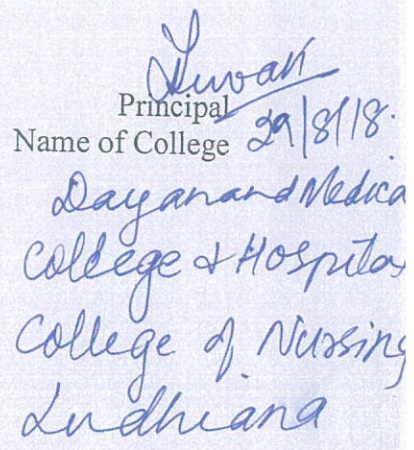 Principal
Name of College 29/8/18.
Dayanand Medica
College & Hospita
College of Nursing
Ludhiana